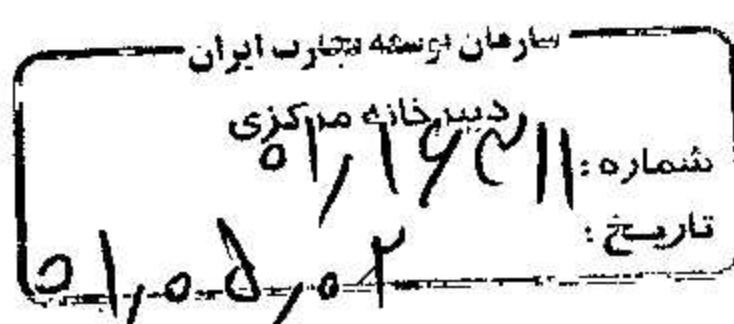 سازمان توسعه تجارت ایران
دبیرخانه مرکزی
شماره: ۰۱/۱۶۳۱۱
تاریخ: ۰۱/۰۵/۰۲